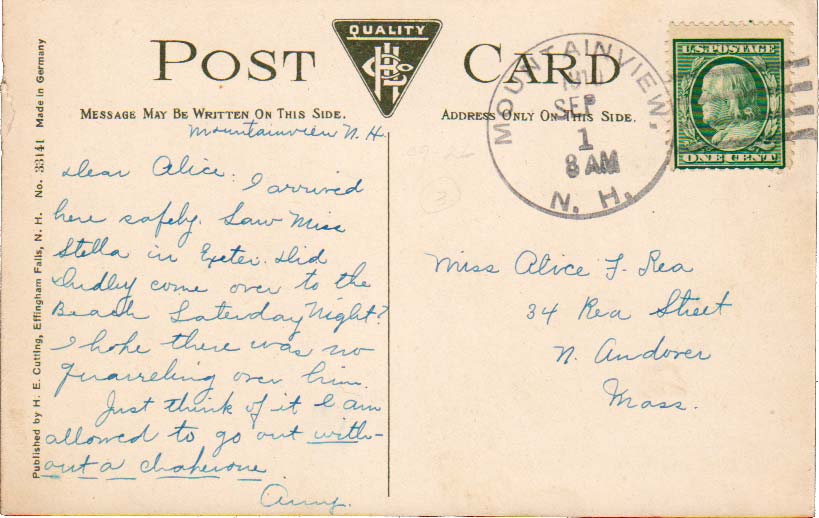 POST CARD
QUALITY
MESSAGE MAY BE WRITTEN ON THIS SIDE.
ADDRESS ONLY ON THIS SIDE.
Mountainview N.H.
Dear Alice.
I arrived
here safely. Saw Miss
Stella in Exeter. Did
Dudley come over to the
Beach Saterday Night?
I hope there was no
quarreling over him.
Just think of it I am
allowed to go out with-
out a chaperone.
MOUNTAINVIEW,
SEP
1
8 AM
N. H.
U.S. POSTAGE
ONE CENT
Miss Alice F. Rea
34 Rea Street
N. Andover
Mass.
Published by H. E. Cutting, Effingham Falls, N. H. No. 33141 Made in Germany